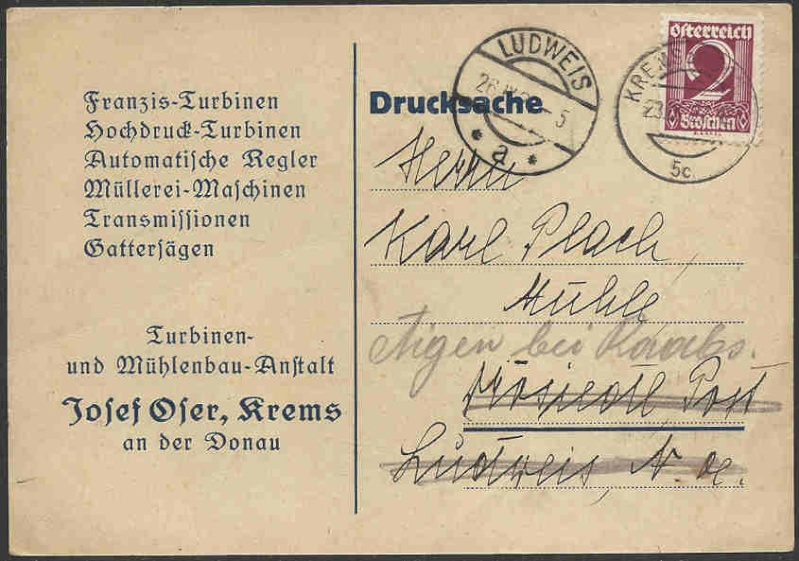 Franzis-Turbinen
Hochdruck-Turbinen
Automatische Regler
Müllerei-Maschinen
Transmissionen
Gattersägen
Turbinen-
und Mühlenbau-Anstalt
Josef Oser, Krems
an der Donau
LUDWEIS
a
Drucksache
KREMS
5c
Österreich
2
Groschen
Herrn
Karl Plach,
Mühle
Aigen bei Raabs.
Post
Ludweis, N. Oe.